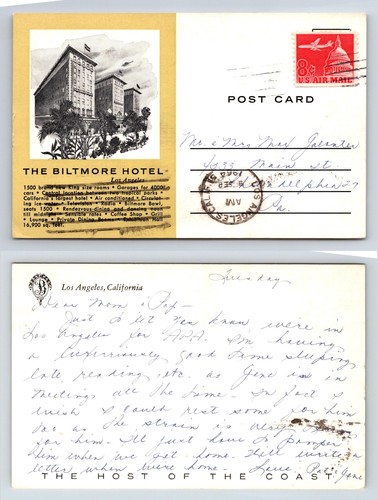 8c U.S. AIR MAIL
POST CARD
THE BILTMORE HOTEL
Los Angeles
1500 brand new King size rooms • Garages for 4000
cars • Central location between two tropical parks •
California's largest hotel • Air conditioned • Circulat-
ing ice water • Television • Radio • Biltmore Bowl,
seats 1500 • Rendezvous-dining and dancing noon
till midnight • Sensible rates • Coffee Shop • Grill
Lounge • Private Dining Rooms • Exhibition Hall
16,900 sq. feet.
Mr. & Mrs. Max
Main St.
Philadelphia 27
Pa.
LOS ANGELES, CALIF.
SEP
AM
Los Angeles, California
Tuesday
Dear Mom & Pop—
Just to let you know we're in
Los Angeles for APA. I'm having
a luxuriously good time sleeping
late reading, etc. as Gene is in
meetings all the time. In fact I
wish I could rest some for him
too as the strain is very
for him. I'll just have to pamper
him when we get home. I'll write a
letter when we're home. Love, Pat & Gene
THE HOST OF THE COAST